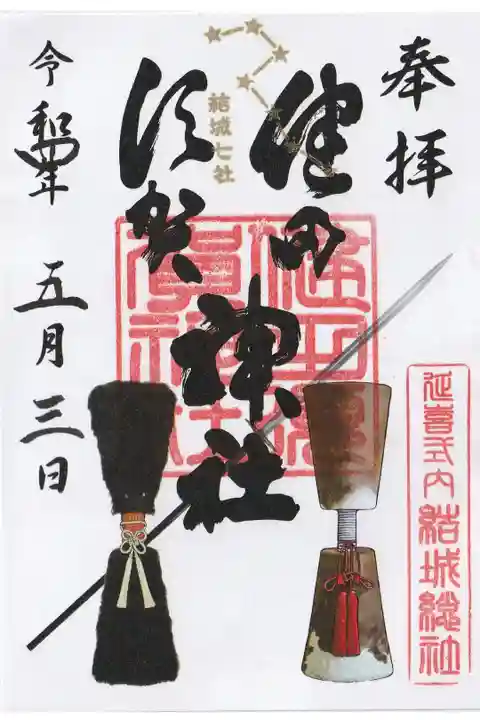 奉拝
健田
須賀
神社
結城七社
令和年
五月三日
健田須
賀神社
延喜式内結城総社